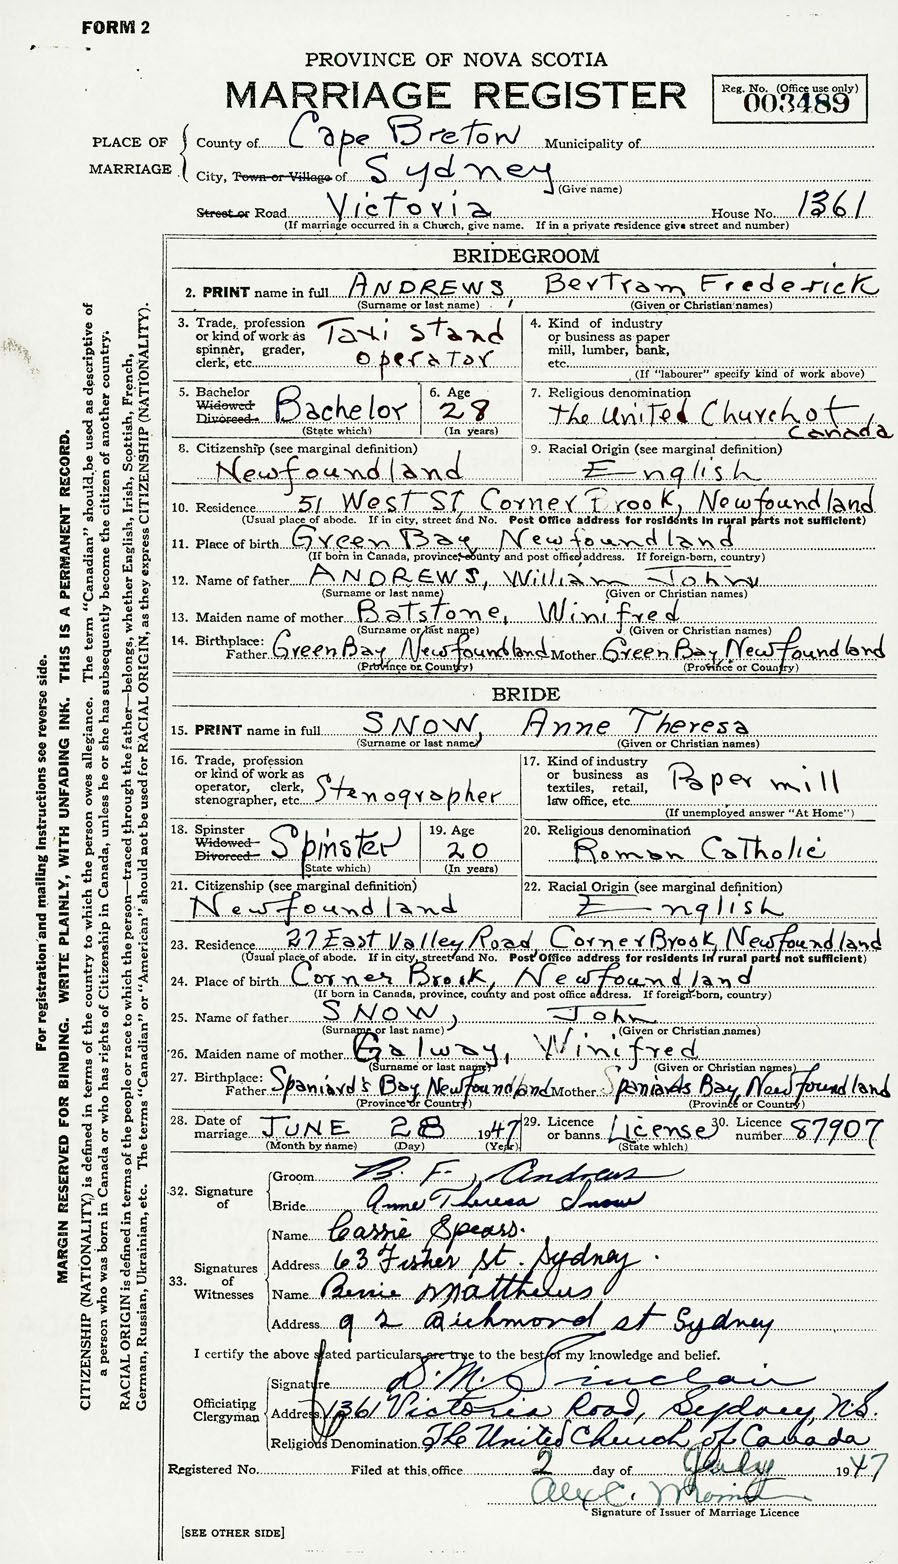 FORM 2
PROVINCE OF NOVA SCOTIA
MARRIAGE REGISTER
Reg. No. (Office use only)
003489
PLACE OF MARRIAGE
County of Cape Breton Municipality of
City, Town or Village of Sydney
(Give name)
Street or Road Victoria House No. 1361
(If marriage occurred in a Church, give name. If in a private residence give street and number)
BRIDEGROOM
2. PRINT name in full ANDREWS Bertram Frederick
(Surname or last name) (Given or Christian names)
3. Trade, profession or kind of work as spinner, grader, clerk, etc. Taxi stand operator
4. Kind of industry or business as paper mill, lumber, bank, etc.
(If "labourer" specify kind of work above)
5. Bachelor Widowed Divorced Bachelor
(State which)
6. Age 28
(In years)
7. Religious denomination
The United Church of Canada
8. Citizenship (see marginal definition)
Newfoundland
9. Racial Origin (see marginal definition)
English
10. Residence 51 West St Corner Brook, Newfoundland
(Usual place of abode. If in city, street and No. Post Office address for residents in rural parts not sufficient)
11. Place of birth Green Bay, Newfoundland
(If born in Canada, province, county and post office address. If foreign-born, country)
12. Name of father ANDREWS, William John
(Surname or last name) (Given or Christian names)
13. Maiden name of mother Batstone, Winifred
(Surname or last name) (Given or Christian names)
14. Birthplace: Father Green Bay, Newfoundland Mother Green Bay, Newfoundland
(Province or Country) (Province or Country)
BRIDE
15. PRINT name in full SNOW, Anne Theresa
(Surname or last name) (Given or Christian names)
16. Trade, profession or kind of work as operator, clerk, stenographer, etc. Stenographer
17. Kind of industry or business as textiles, retail, law office, etc. Paper mill
(If unemployed answer "At Home")
18. Spinster Widowed Divorced Spinster
(State which)
19. Age 20
(In years)
20. Religious denomination
Roman Catholic
21. Citizenship (see marginal definition)
Newfoundland
22. Racial Origin (see marginal definition)
English
23. Residence 27 East Valley Road, Corner Brook, Newfoundland
(Usual place of abode. If in city, street and No. Post Office address for residents in rural parts not sufficient)
24. Place of birth Corner Brook, Newfoundland
(If born in Canada, province, county and post office address. If foreign-born, country)
25. Name of father SNOW, John
(Surname or last name) (Given or Christian names)
26. Maiden name of mother Galway, Winifred
(Surname or last name) (Given or Christian names)
27. Birthplace: Father Spaniard's Bay, Newfoundland Mother Spaniards Bay, Newfoundland
(Province or Country) (Province or Country)
28. Date of marriage JUNE 28 1947
(Month by name) (Day) (Year)
29. Licence or banns License
(State which)
30. Licence number 87907
32. Signature of
Groom B. F. Andrews
Bride Anne Theresa Snow
33. Signatures of Witnesses
Name Cassie Spears.
Address 63 Fisher St. Sydney.
Name Matthews
Address 92 Richmond st Sydney
I certify the above stated particulars are true to the best of my knowledge and belief.
Officiating Clergyman
Signature D. M. Sinclair
Address 1361 Victoria Road, Sydney, N.S.
Religious Denomination The United Church of Canada
Registered No. Filed at this office 2 day of July 1947
Alex C.
Signature of Issuer of Marriage Licence
[SEE OTHER SIDE]
For registration and mailing instructions see reverse side.
MARGIN RESERVED FOR BINDING. WRITE PLAINLY, WITH UNFADING INK. THIS IS A PERMANENT RECORD.
CITIZENSHIP (NATIONALITY) is defined in terms of the country to which the person owes allegiance. The term "Canadian" should be used as descriptive of
a person who was born in Canada or who has rights of Citizenship in Canada, unless he or she has subsequently become the citizen of another country.
RACIAL ORIGIN is defined in terms of the people or race to which the person—traced through the father—belongs, whether English, Irish, Scottish, French,
German, Russian, Ukrainian, etc. The terms "Canadian" or "American" should not be used for RACIAL ORIGIN, as they express CITIZENSHIP (NATIONALITY).